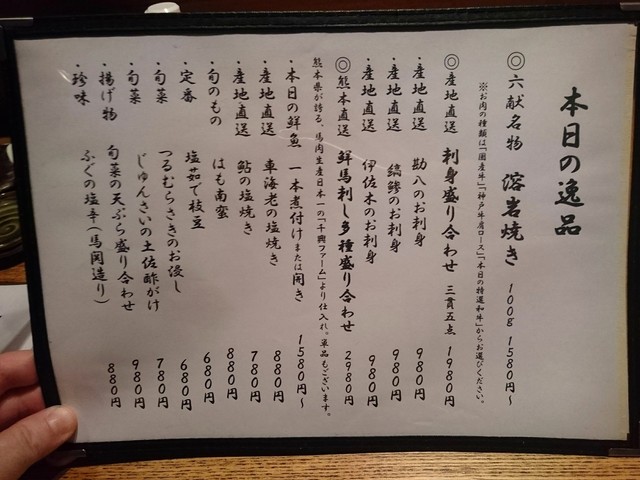 本日の逸品
◎六献名物 溶岩焼き 100g 1580円～
※お肉の種類は「国産牛」「神戸牛肩ロース」「本日の特選和牛」からお選びください。
◎産地直送 刺身盛り合わせ 三貫五点 1980円
・産地直送 勘八のお刺身 980円
・産地直送 縞鯵のお刺身 980円
・産地直送 伊佐木のお刺身 980円
◎熊本直送 鮮馬刺し多種盛り合わせ 2980円
熊本県が誇る、馬肉生産日本一の「千興ファーム」より仕入れ。単品もございます。
・本日の鮮魚 一本煮付けまたは開き 1580円～
・産地直送 車海老の塩焼き 880円
・産地直送 鮎の塩焼き 780円
・旬のもの はも南蛮 880円
・定番 塩茹で枝豆 680円
・旬菜 つるむらさきのお浸し 680円
・旬菜 じゅんさいの土佐酢がけ 780円
・揚げ物 旬菜の天ぷら盛り合わせ 980円
・珍味 ふぐの塩辛（馬関造り） 880円